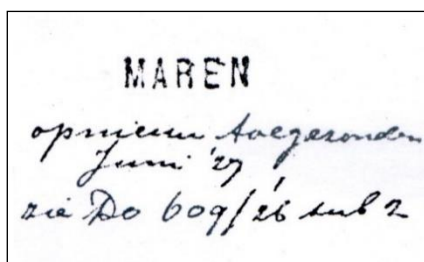 MAREN
opnieuw toegezonden
Juni '27
zie Do 609/'26 sub 2